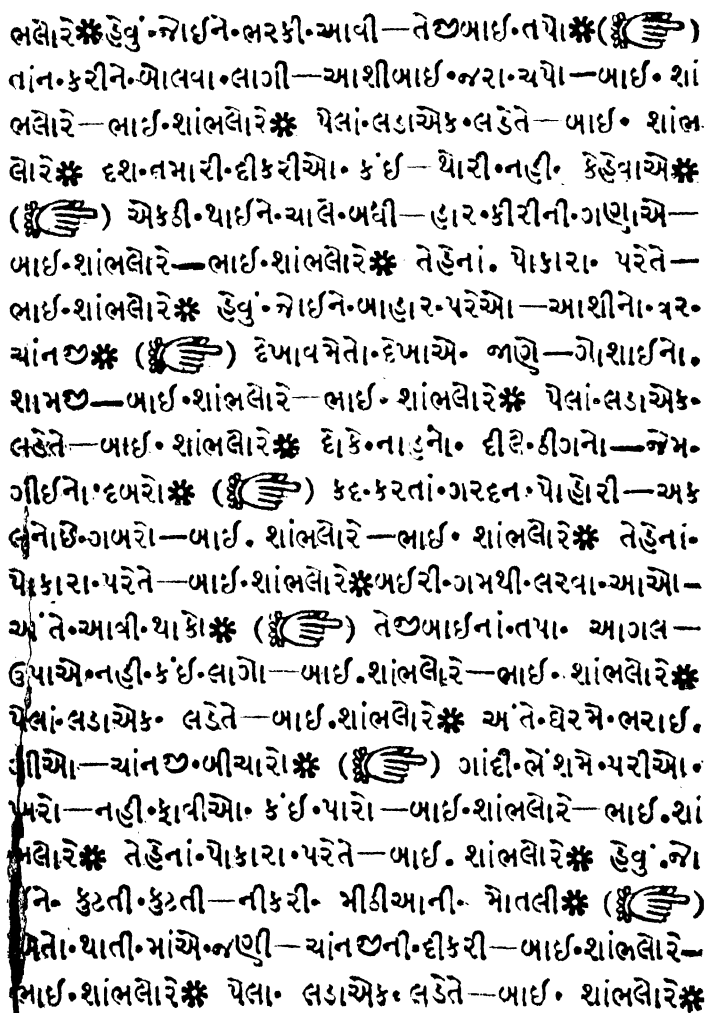 ભલોરે✽હેવું·જોઈને·ભરકી·આવી—તેજીબાઈ·તપો✽(☞)
તાંન·કરીને·બોલવા·લાગી—આશીબાઈ·જરા·ચપો—બાઈ·શાં
ભલોરે—ભાઈ·શાંભલોરે✽ પેલાં·લડાએક·લડેતે—બાઈ· શાંભ
લોરે✽ દશ·તમારી·દીકરીઓ· કંઈ—થોરી·નહી· કેહેવાએ✽
(☞) એકઠી·થાઈને·ચાલે·બધી—હાર·કીરીની·ગણાએ—
બાઈ·શાંભલોરે—ભાઈ·શાંભલોરે✽ તેહેનાં· પોકારા· પરેતે—
ભાઈ·શાંભલોરે✽ હેવું·જોઈને·બાહાર·પરેઓ—આશીનો·ત્રર·
ચાંનજી✽ (☞) દેખાવમેતો·દેખાએ· જાણે—ગોશાઈનો·
શામજી—બાઈ·શાંભલોરે—ભાઈ· શાંભલોરે✽ પેલાં·લડાએક·
લડેતે—બાઈ· શાંભલોરે✽ દોકે·નાહનો· દીલે·ઠીગનો—જેમ·
ગીઈનો·દબરો✽ (☞) કદ·કરતાં·ગરદન·પોહોરી—અક
લનોછે·ગબરો—બાઈ· શાંભલોરે—ભાઈ· શાંભલોરે✽ તેહેનાં·
પોકારા·પરેતે—બાઈ·શાંભલોરે✽બઈરી·ગમથી·લરવા·આઓ—
અંતે·આવી·થાકો✽ (☞) તેજીબાઈનાં·તપા· આગલ—
ઉપાએ·નહી·કંઈ·લાગો—બાઈ·શાંભલોરે—ભાઈ· શાંભલોરે✽
પેલાં·લડાએક· લડેતે—બાઈ·શાંભલોરે✽ અંતે·ઘેરમે·ભરાઈ·
ગીઓ—ચાંનજી·બીચારો✽ (☞) ગાંદી·ભેંશમે·પરીઓ·
ખરો—નહી·ફાવીઓ· કંઈ·પારો—બાઈ·શાંભલોરે—ભાઈ·શાં
ભલોરે✽ તેહેનાં·પોકારા·પરેતે—બાઈ· શાંભલોરે✽ હેવું·જો
ઈને· કુટતી·કુટતી—નીકરી· મીઠીઆની· મોતલી✽ (☞)
થાતી·માંએ·જણી—ચાંનજીની·દીકરી—બાઈ·શાંભલોરે—
ભાઈ·શાંભલોરે✽ પેલા· લડાએક· લડેતે—બાઈ· શાંભલોરે✽